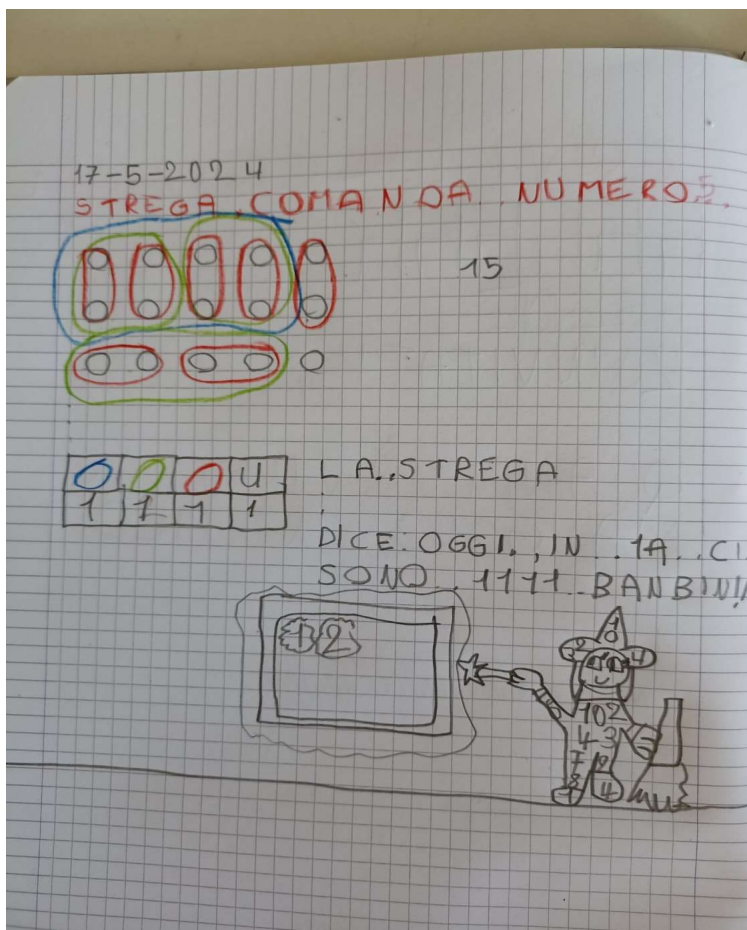 17-5-2024
STREGA COMANDA NUMERO
15
U
1 1 1 1
LA STREGA
DICE: OGGI, IN 1A CI
SONO 1111 BANBINI!
1 2
1
0
2 4
102
43
7
8
4